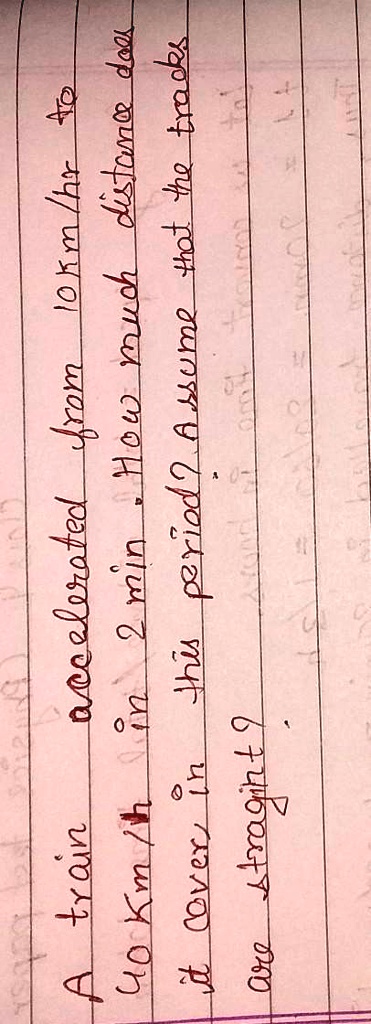 A train accelerated from 10km/hr to
40km/h in 2 min. How much distance does
it cover in this period? Assume that the tracks
are stragint?